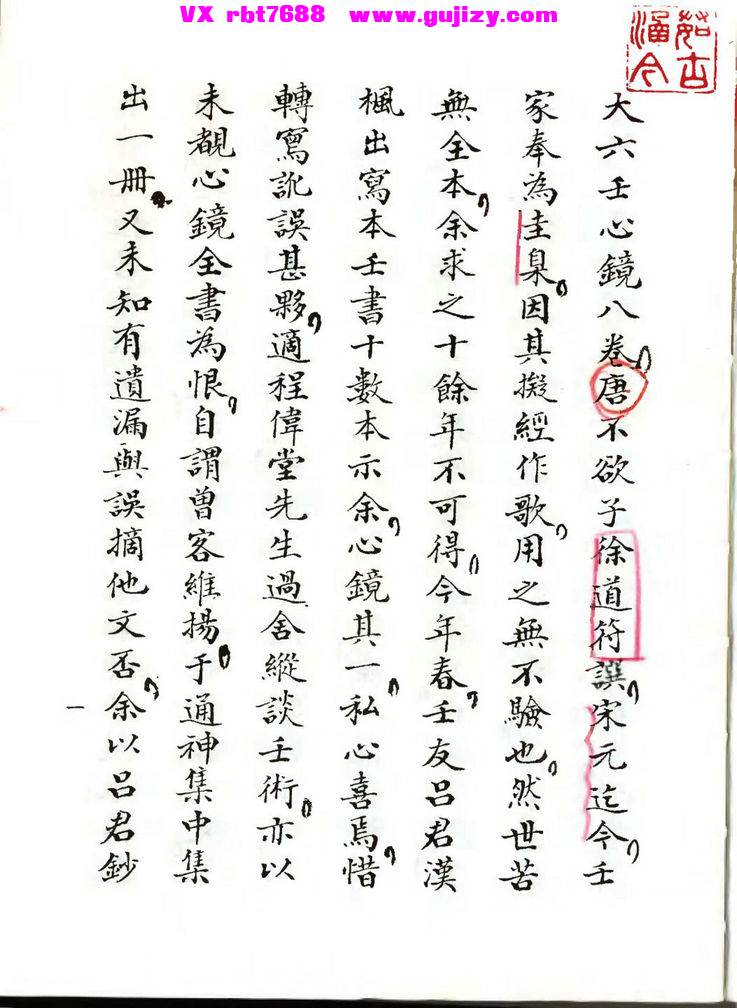 VX rbt7688 www.gujizy.com
茹古涵今
大六壬心鏡八卷，唐不欲子徐道符譔，宋元迄今，壬
家奉為圭臬，因其擬經作歌，用之無不驗也，然世苦
無全本，余求之十餘年不可得，今年春，壬友呂君漢
楓出寫本壬書十數本示余，心鏡其一，私心喜焉，惜
轉寫訛誤甚夥，適程偉堂先生過舍縱談壬術，亦以
未覩心鏡全書為恨，自謂曾客維揚，于通神集中集
出一冊，又未知有遺漏與誤摘他文否，余以呂君鈔
一